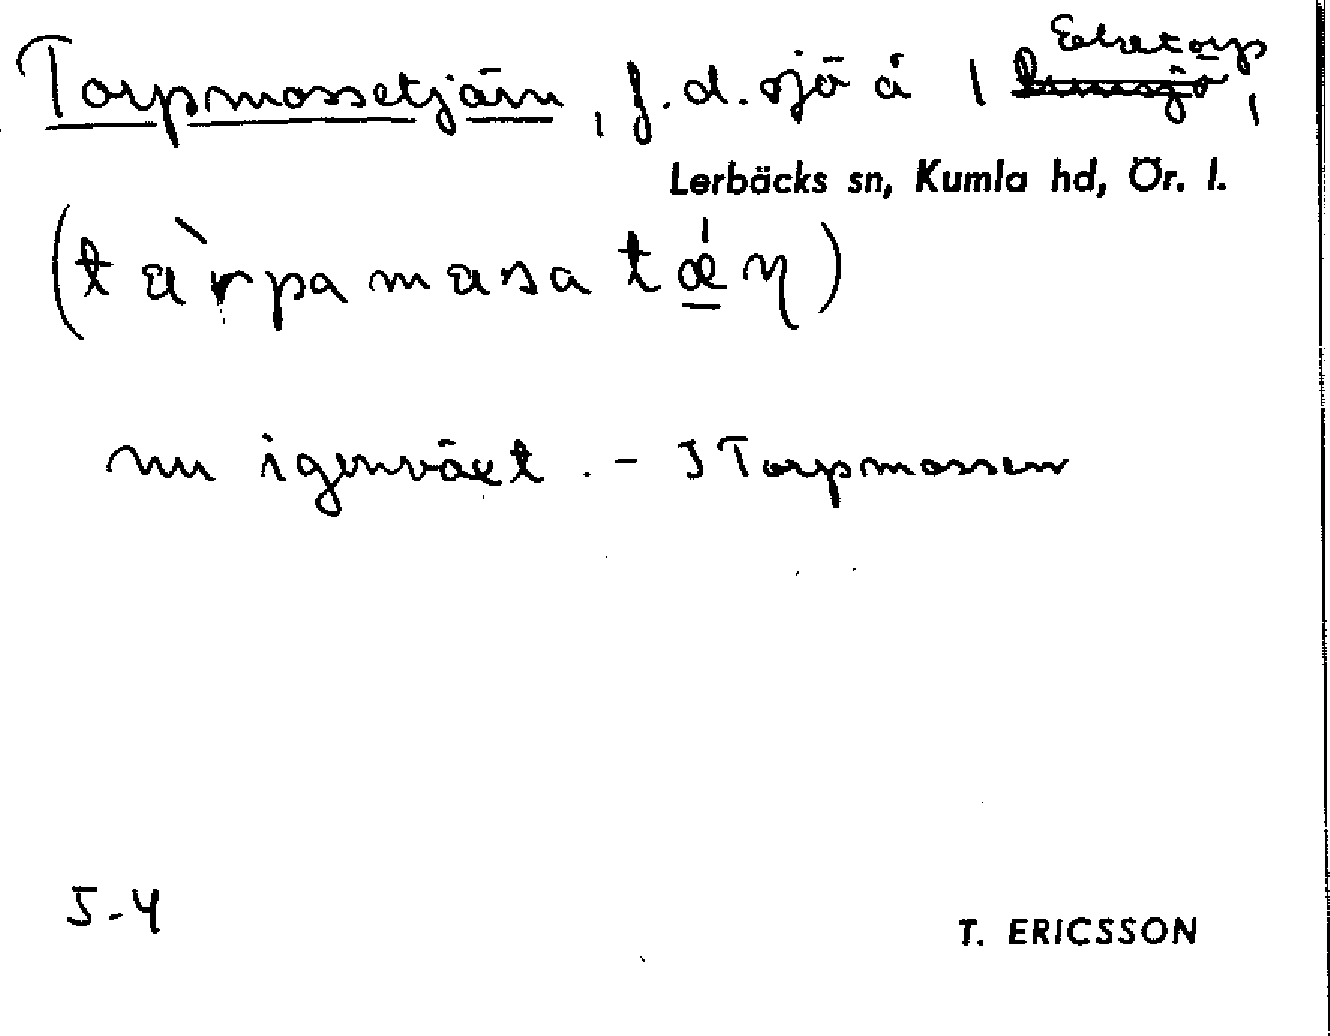 Torpmossetjärn, f.d. sjö å 1
Lerbäcks sn, Kumla hd, Ör. l.
nu igenväxt. - I Torpmossen
5-4
T. ERICSSON